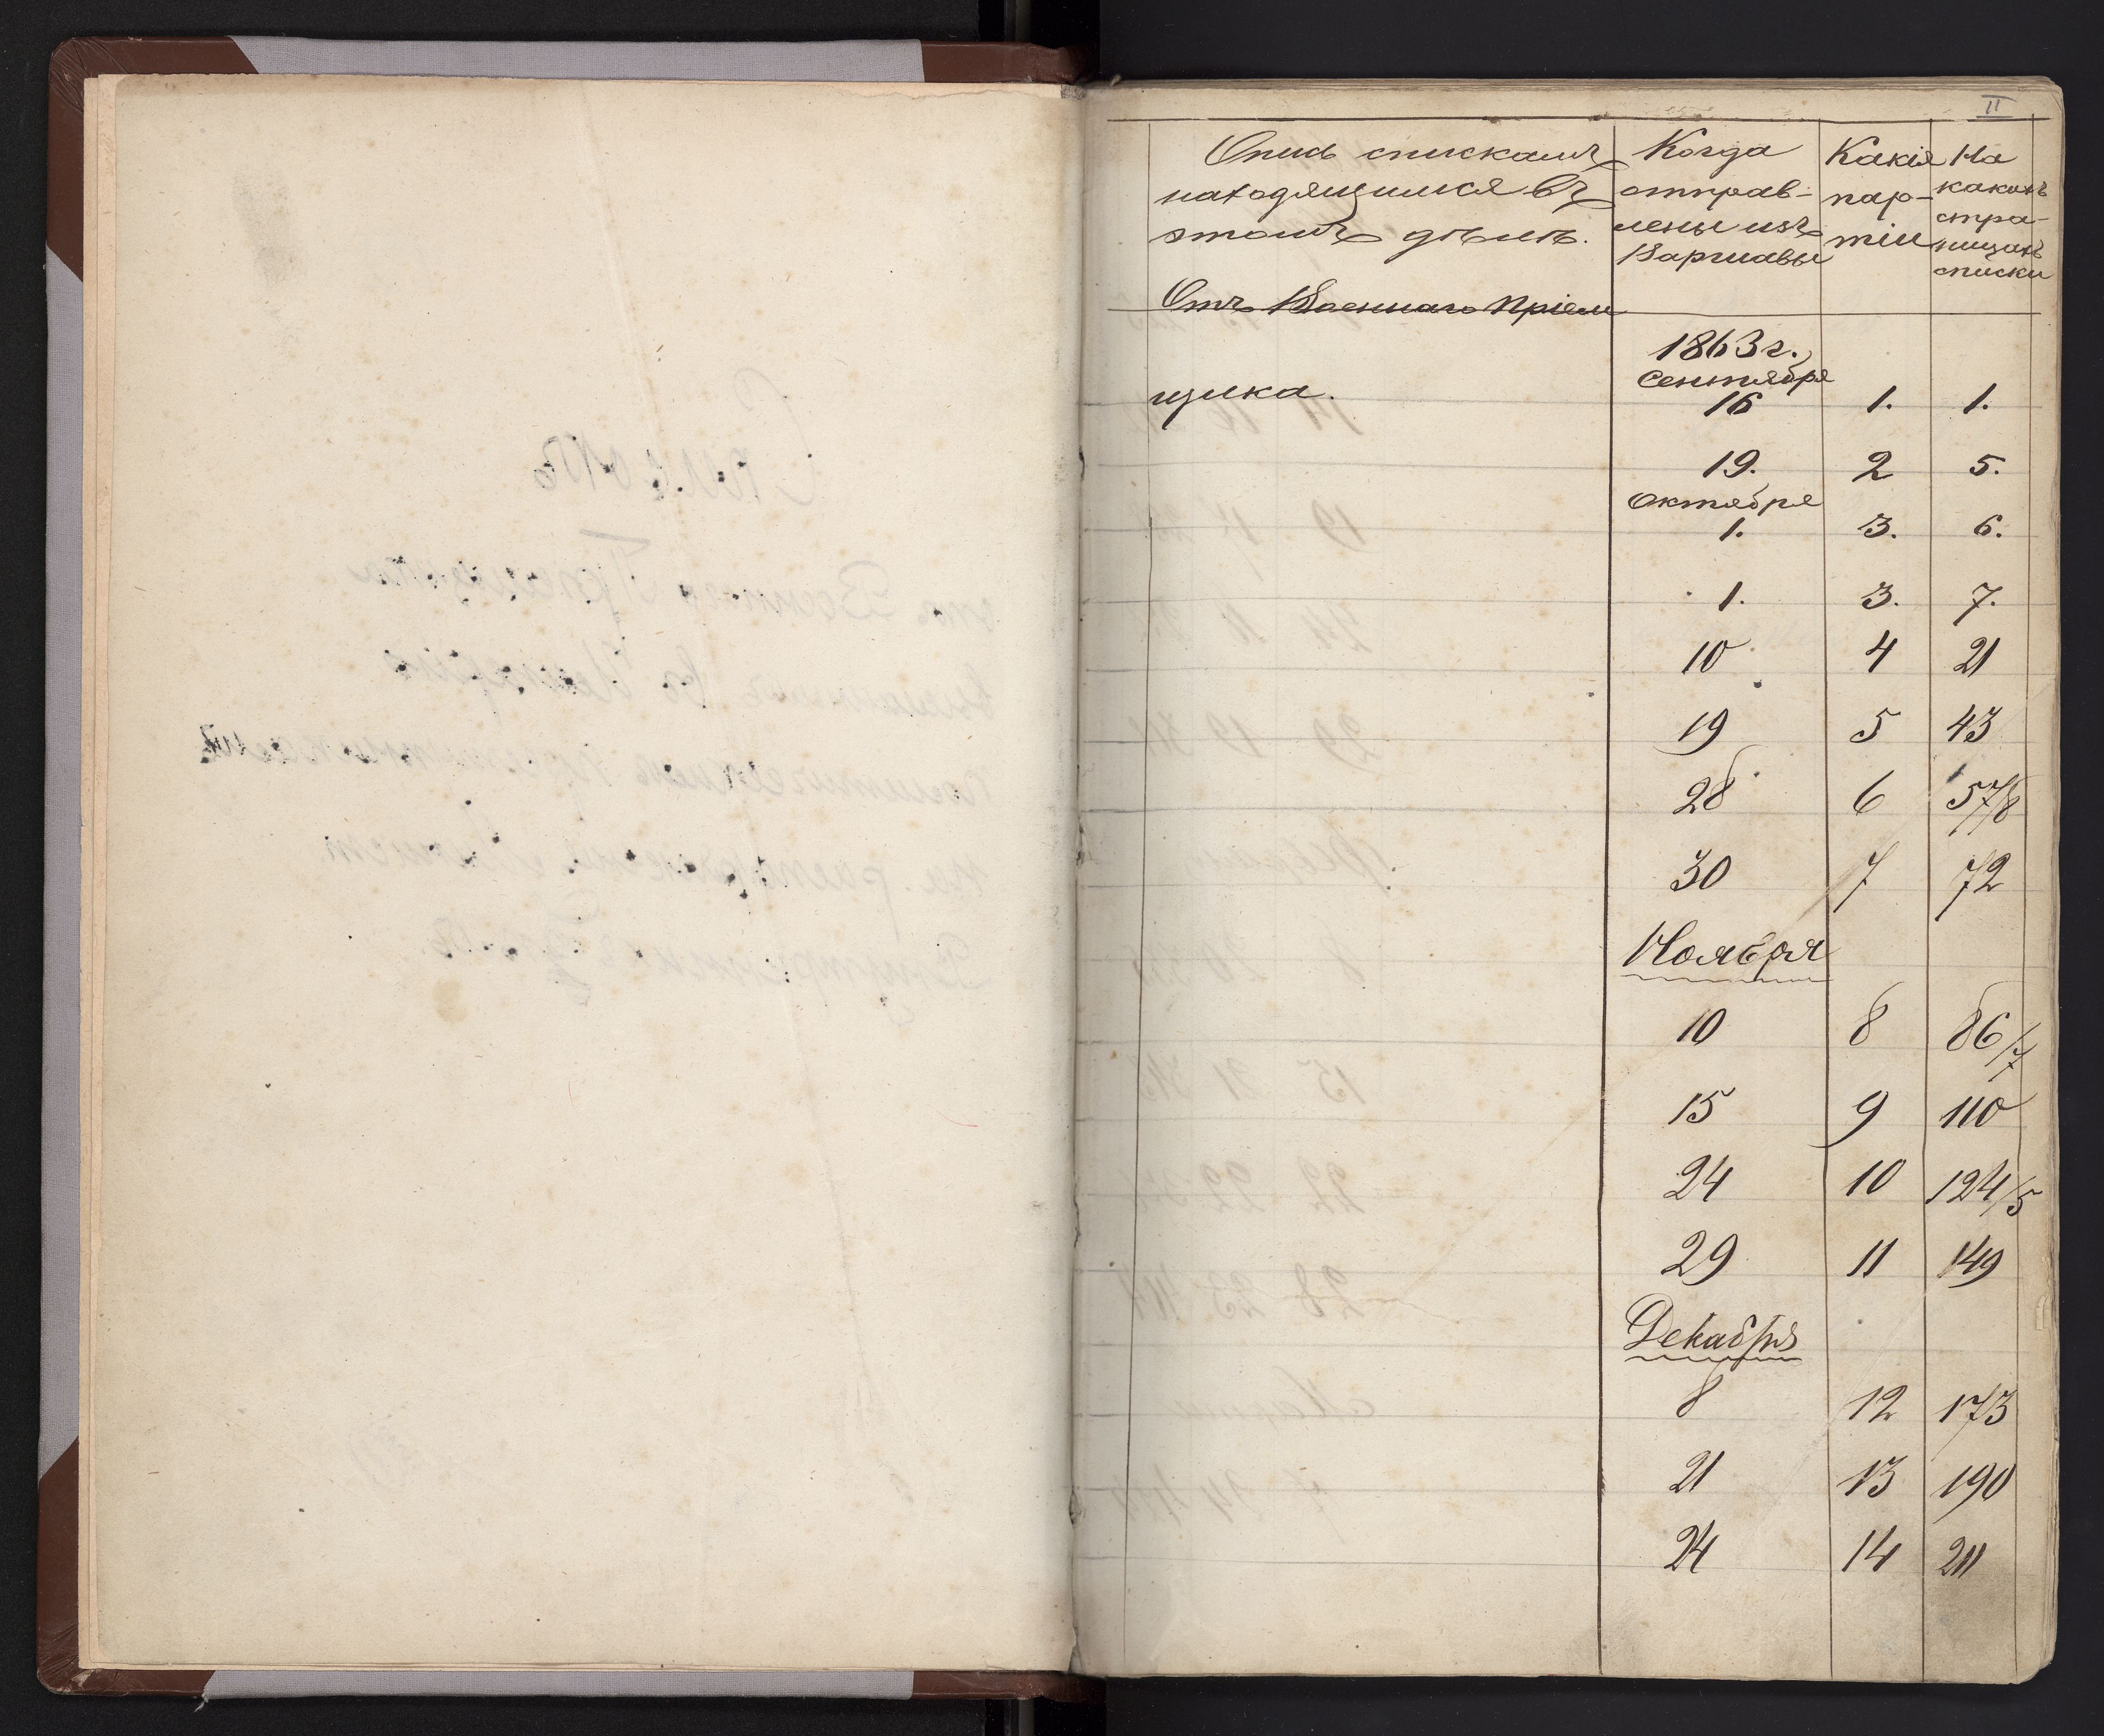 II
Опись спискамъ
находящимися въ
этомъ дѣлѣ.
Когда
отправ-
лены изъ
Варшавы
Какія
пар-
тіи
На
какихъ
стра-
ницахъ
списки
Отъ Военнаго Пріем
щика.
1863 г.
Сентября
16 1. 1.
19. 2 5.
Октября
1. 3. 6.
1. 3. 7.
10 4 21
19 5 43
28 6 57/8
30 7 72
Ноября
10 8 86/7
15 9 110
24 10 124/5
29 11 149
Декабря
8 12 173
21 13 190
24 14 211